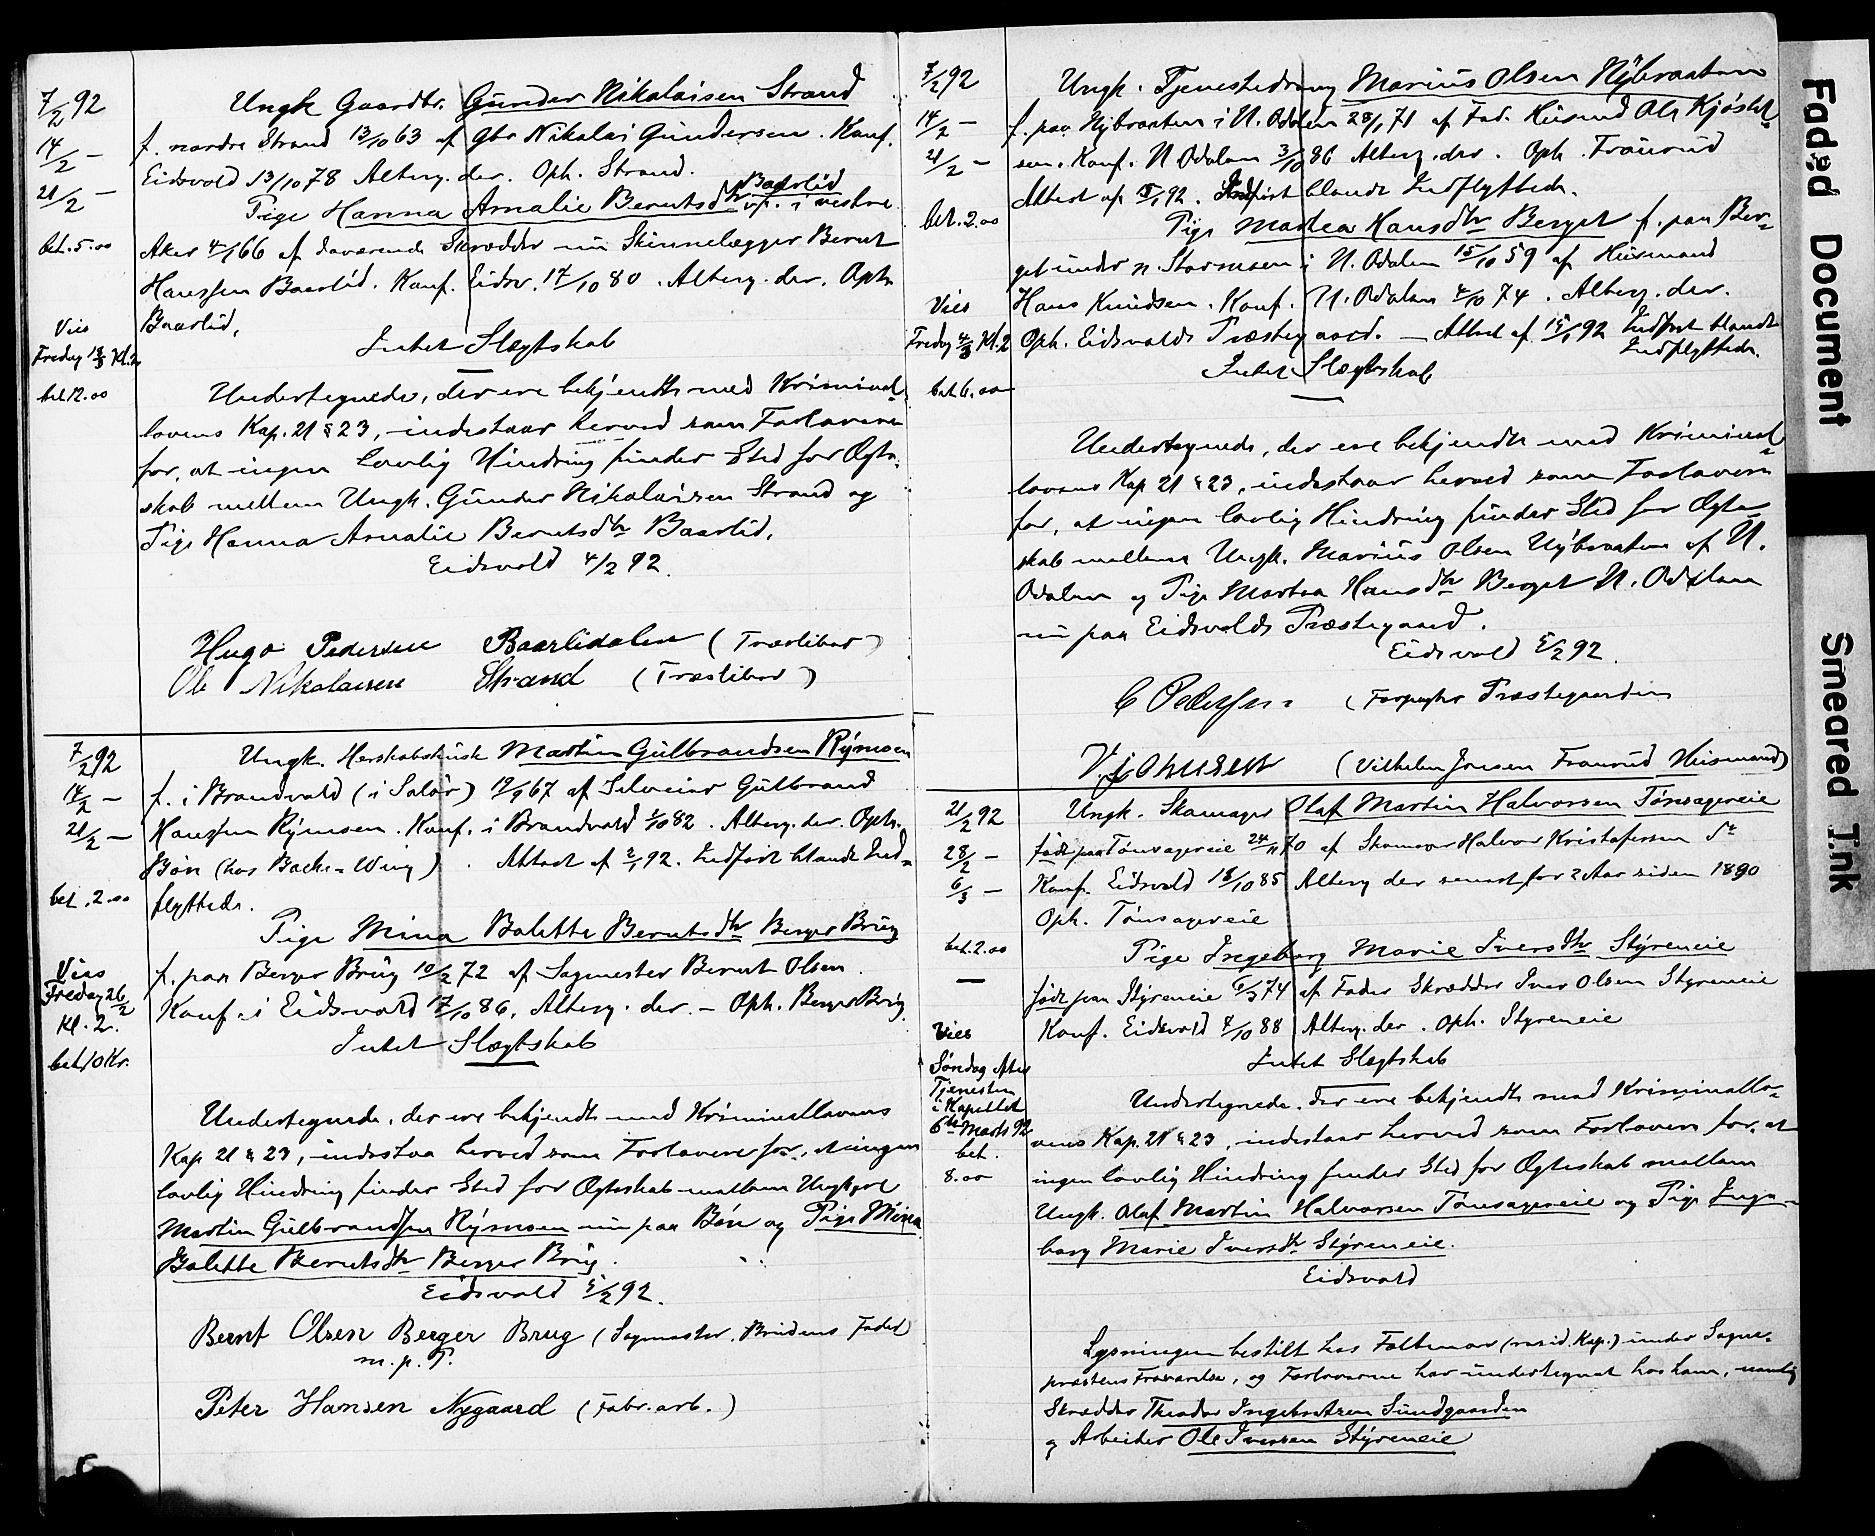 7/2 92
14/2 —
21/2 —
bet. 5.00
Vies
Fredag 18/3 Kl. 2
bet 12.00
Ungk Gaardbr. Gunder Nikolaisen Strand
f. nordre Strand 13/10 63 af Gbr Nikolai Gundersen. Konf.
Eidsvold 13/10 78 Alterg. der. Oph. Strand.
Pige Hanna Amalie Berntsdtr Baarlid f. i vestre
Aker 4/1 66 af daværende Skrædder nu Skinnelægger Bernt
Hanssen Baarlid. Konf. Eidsv. 17/10 80. Alterg. der. Oph.
Baarlid.
Intet Slægtskab
Undertegnede, der ere bekjendte med Kriminal-
lovens Kap. 21 § 23, indestaar herved som Forlovere
for, at ingen lovlig Hindring finder Sted for Ægte-
skab mellem Ungk. Gunder Nikolaisen Strand og
Pige Hanna Amalie Berntsdtr Baarlid.
Eidsvold 4/2 92.
Hugo Pedersen Baarlidalen (Træsliber)
Ole Nikolaisen Strand (Træsliber)
7/2 92
14/2 —
21/2 —
bet. 2.00
Vies
Fredag 26/2
Kl. 2.
bet 10 Kr.
Ungk. Herskabskusk Martin Gulbrandsen Rymoen
f. i Brandvold (i Solør) 19/9 67 af Selveier Gulbrand
Hanssen Rymoen. Konf. i Brandvold 1/10 82. Alterg. der. Oph.
Bøn (hos Backe-Wiig). Attest af 2/1 92. Indført blandt Ind-
flyttede.
Pige Mina Bolette Berntsdtr Berger Brug
f. paa Berger Brug 10/2 72 af Sagmester Bernt Olsen.
Konf. i Eidsvold 17/10 86. Alterg. der. – Oph. Berger Brug
Intet Slægtskab
Undertegnede, der ere bekjendt med Kriminallovens
Kap 21 § 23, indestaa herved som Forlovere for, at ingen
lovlig Hindring finder Sted for Ægteskab mellem Ungkarl
Martin Gulbrandsen Rymoen nu paa Bøn og Pige Mina
Bolette Berntsdtr Berger Brug.
Eidsvold 5/2 92.
Bernt Olsen Berger Brug (Sagmester. Brudens Fader)
m. p. P.
Peter Hansen Nygaard (Fabr. arb.)
7/2 92
14/2 —
21/2 —
bet. 2.00
Vies
Fredag 4/3 Kl. 2
bet 6.00
Ungk. Tjenestedreng Marius Olsen Nybraaten
f. paa Nybraaten i N. Odalen 28/1 71 af Fad. Husmd Ole Kjøstel-
sen. Konf. N Odalen 3/10 86 Alterg. der. Oph. Frøurud
Attest af 15/1 92. Indført blandt Indflyttede.
Pige Martea Hansdtr Berget f. paa Ber-
get under n. Stormoen i N. Odalen 15/10 59 af Husmand
Hans Knudsen. Konf. N. Odalen 4/10 74. Alterg. der.
Oph. Eidsvolds Præstegaard. — Attest af 15/1 92 Indført blandt
Indflyttede.
Intet Slægtskab
Undertegnede, der ere bekjendte med Kriminal-
lovens Kap 21 § 23, indestaar herved som Forlovere
for, at ingen lovlig Hindring finder Sted for Ægte-
skab mellem Ungk. Marius Olsen Nybraaten af N.
Odalen og Pige Martea Hansdtr Berget N. Odalen
nu paa Eidsvolds Præstegaard.
Eidsvold 5/2 92.
C Pedersen (Forpagter Præstegaarden
V. Johnsen (Vilhelm Jonsen Frøurud Husmand)
21/2 92
28/2 —
6/3 —
bet. 2.00
Vies
Søndag efter
Tjenesten
i Kapellet
6te Marts 92
bet.
8.00
Ungk. Skomager Olaf Martin Halvorsen Tønsagereie
født paa Tønsagereie 24/11 70 af Skomager Halvor Kristofersen
Konf. Eidsvold 18/10 85 Alterg der senest for 2 Aar siden 1890
Oph. Tønsagereie
Pige Ingeborg Marie Iversdtr Styreneie
født paa Styreneie 5/3 74 af Fader Skrædder Iver Olsen Styreneie
Konf. Eidsvold 7/10 88 Alterg. der. Oph. Styreneie
Intet Slægtskab
Undertegnede, der ere bekjendte med Kriminallo-
vens Kap. 21 § 23, indestaar herved som Forlovere for, at
ingen lovlig Hindring finder Sted for Ægteskab mellem
Ungk. Olaf Martin Halvorsen Tønsagereie og Pige Inge-
borg Marie Iversdtr Styreneie.
Eidsvold
Lysningen bestilt hos Feltmar (resid. Kap.) under Sogne-
præstens Fraværelse, og Forloverne har undertegnet hos ham, nemlig
Skrædder Theodor Ingebretsen Sundgaarden
og Arbeider Ole Iversen Styreneie
Faded Document
Smeared Ink